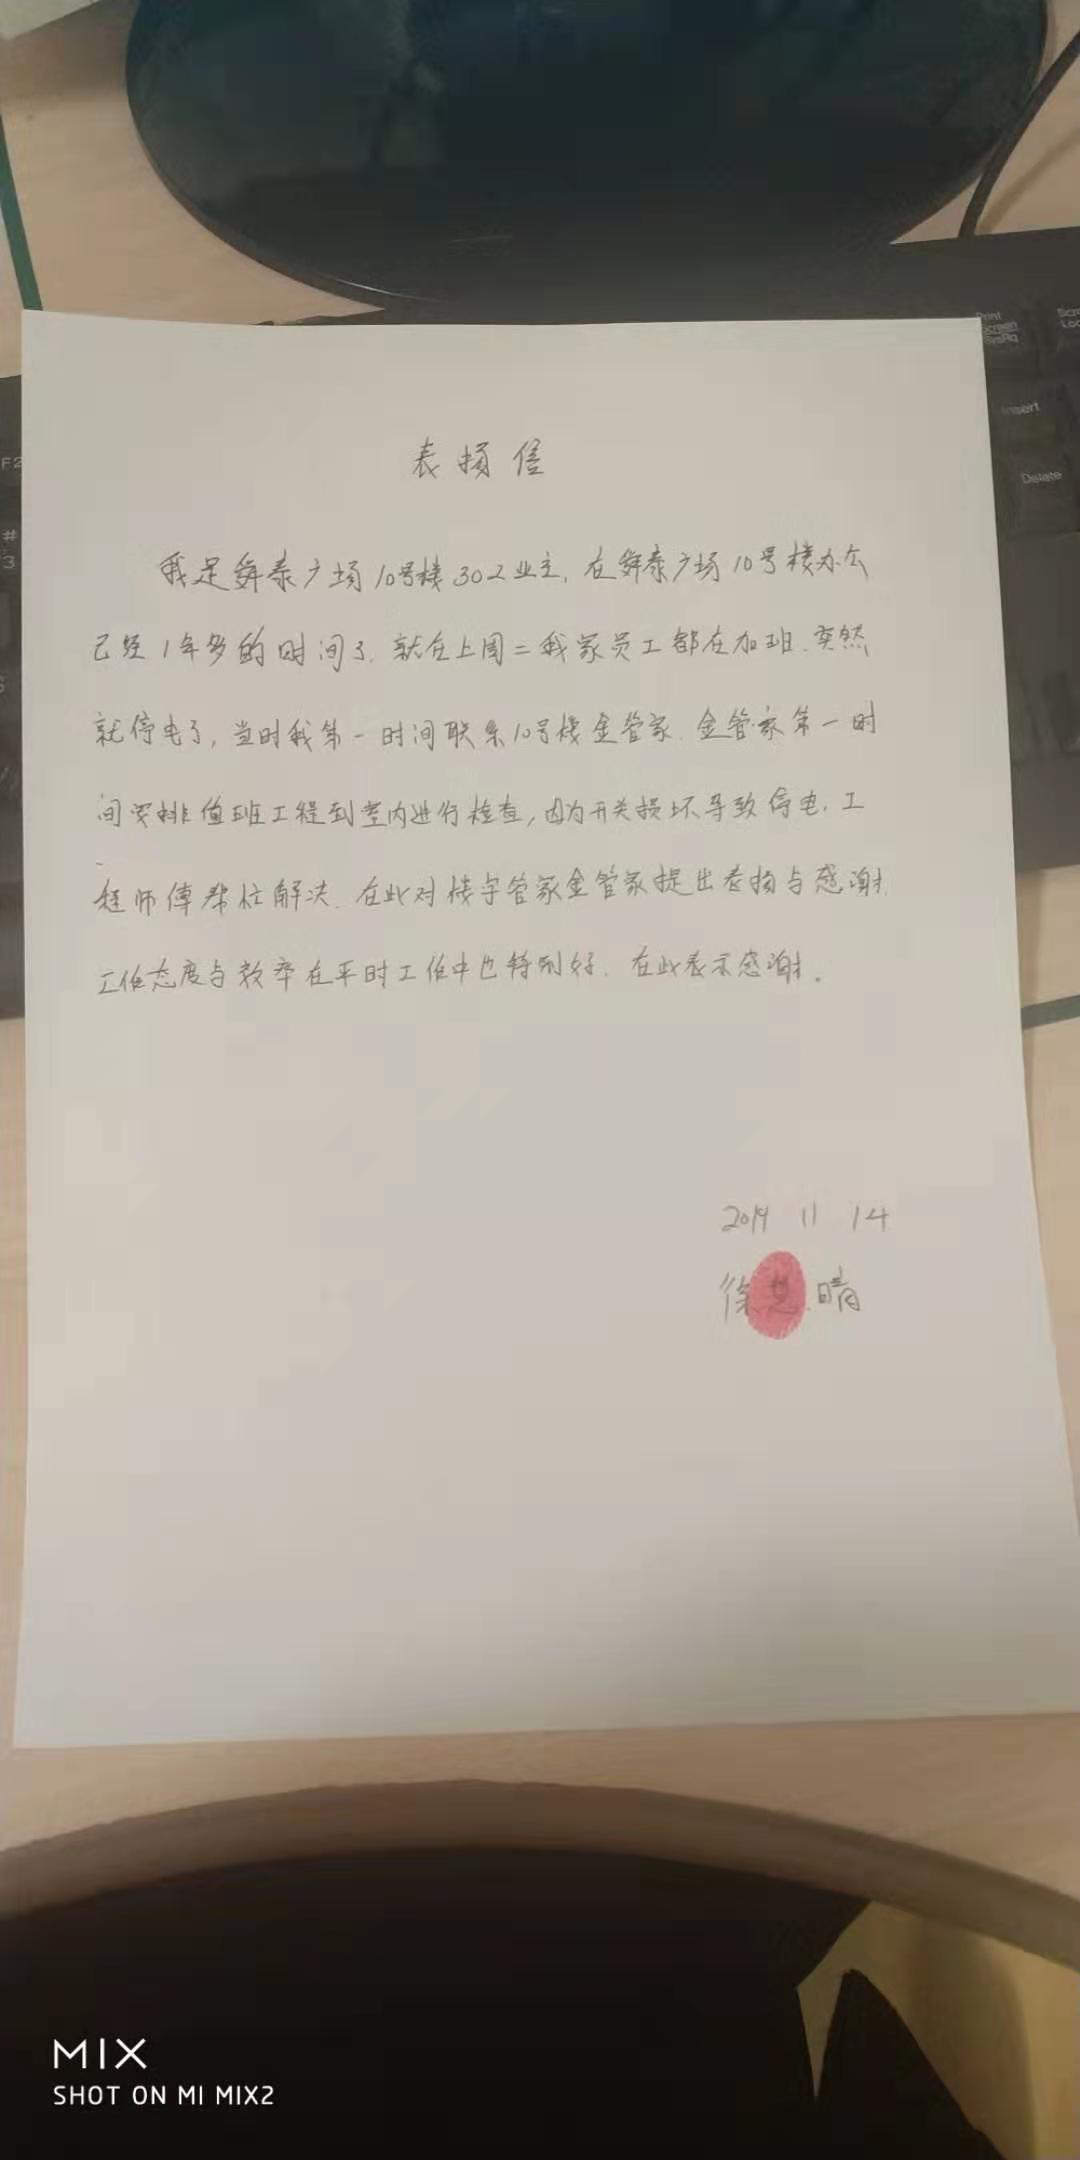 Print
Screen
SysRq
Insert
Delete
F2
#
3
表损信
我是舜泰广场10号楼302业主,在舜泰广场10号楼办公
已经1年多的时间了.就在上周二我家员工都在加班.突然
就停电了,当时我第一时间联系10号楼金管家.金管家第一时
间安排值班工程到室内进行检查,因为开关损坏导致停电,工
程师傅帮忙解决.在此对楼宇管家金管家提出表扬与感谢.
工作态度与效率在平时工作中也特别好.在此表示感谢。
2019 11 14
徐 晴
MIX
SHOT ON MI MIX2